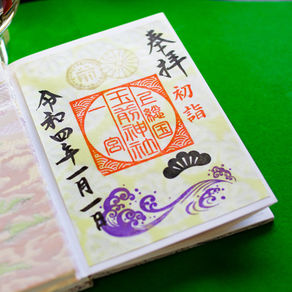 奉拝
初詣
上總国
玉前神社
一宮
令和四年一月一日